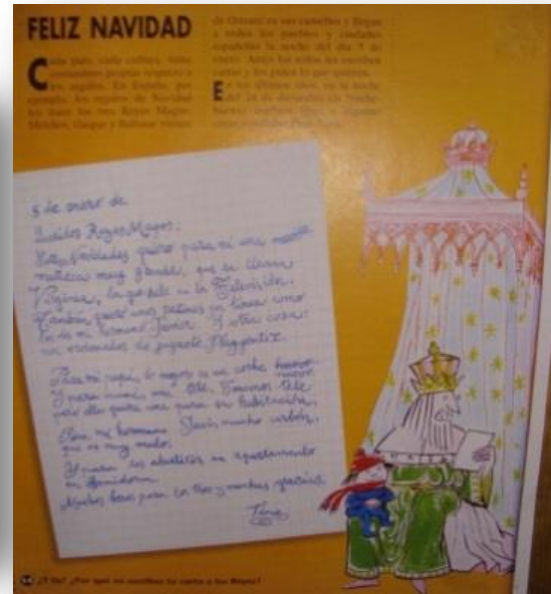 FELIZ NAVIDAD
Cada país, cada cultura, tiene
costumbres propias respecto a
los regalos. En España, por
ejemplo, los regalos de Navidad
los traen los tres Reyes Magos:
Melchor, Gaspar y Baltasar vienen
de Oriente en sus camellos y llegan
a todos los pueblos y ciudades
españolas la noche del día 5 de
enero. Antes los niños les escriben
cartas y les piden lo que quieren.
En los últimos años, en la noche
del 24 de diciembre
también
5 de enero de
Queridos Reyes Magos:
Estas Navidades quiero para mí una
muñeca muy grande, que se llama
Virginia, la que sale en la Televisión.
También quiero unos patines en línea como
los de mi hermano Javier. Y otra cosa:
un ordenador de juguete
Para mi papá, lo mejor es un coche nuevo
Y para mamá, una tele. Tenemos tele
pero ella quiere una para su habitación.
Para mi hermano Javier mucho carbón,
que es muy malo.
Y para los abuelitos un apartamento
en Benidorm.
Muchos besos para los tres y muchas gracias
¿Y tú? ¿Por qué no escribes tu carta a los Reyes?